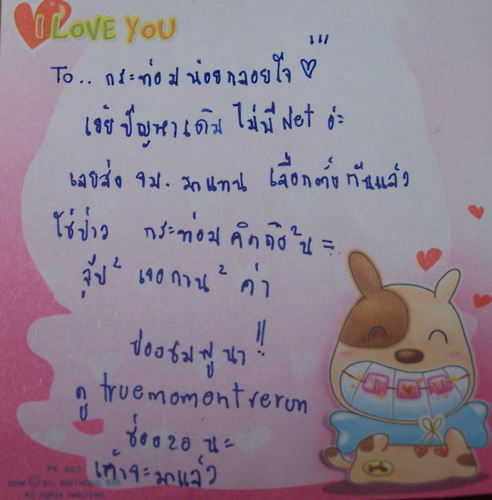 I LOVE YOU
To.. กระท่อมน้อยคอยใจ
เอ้ยปัญหาเดิม ไม่มี Net อ่ะ
เลยส่ง จม. มาแทน เลือกตั้งกันแล้ว
ใช่ป่าว กระท่อมคิดถึง
จุ๊บ² เจอกาน² ค่า
ปองชมพูนา!!
ดู truemoment rerun
ช่อง 20 นะ
เต้าจะมาแล้ว
I ♥ U
PK 803
All rights reserved.